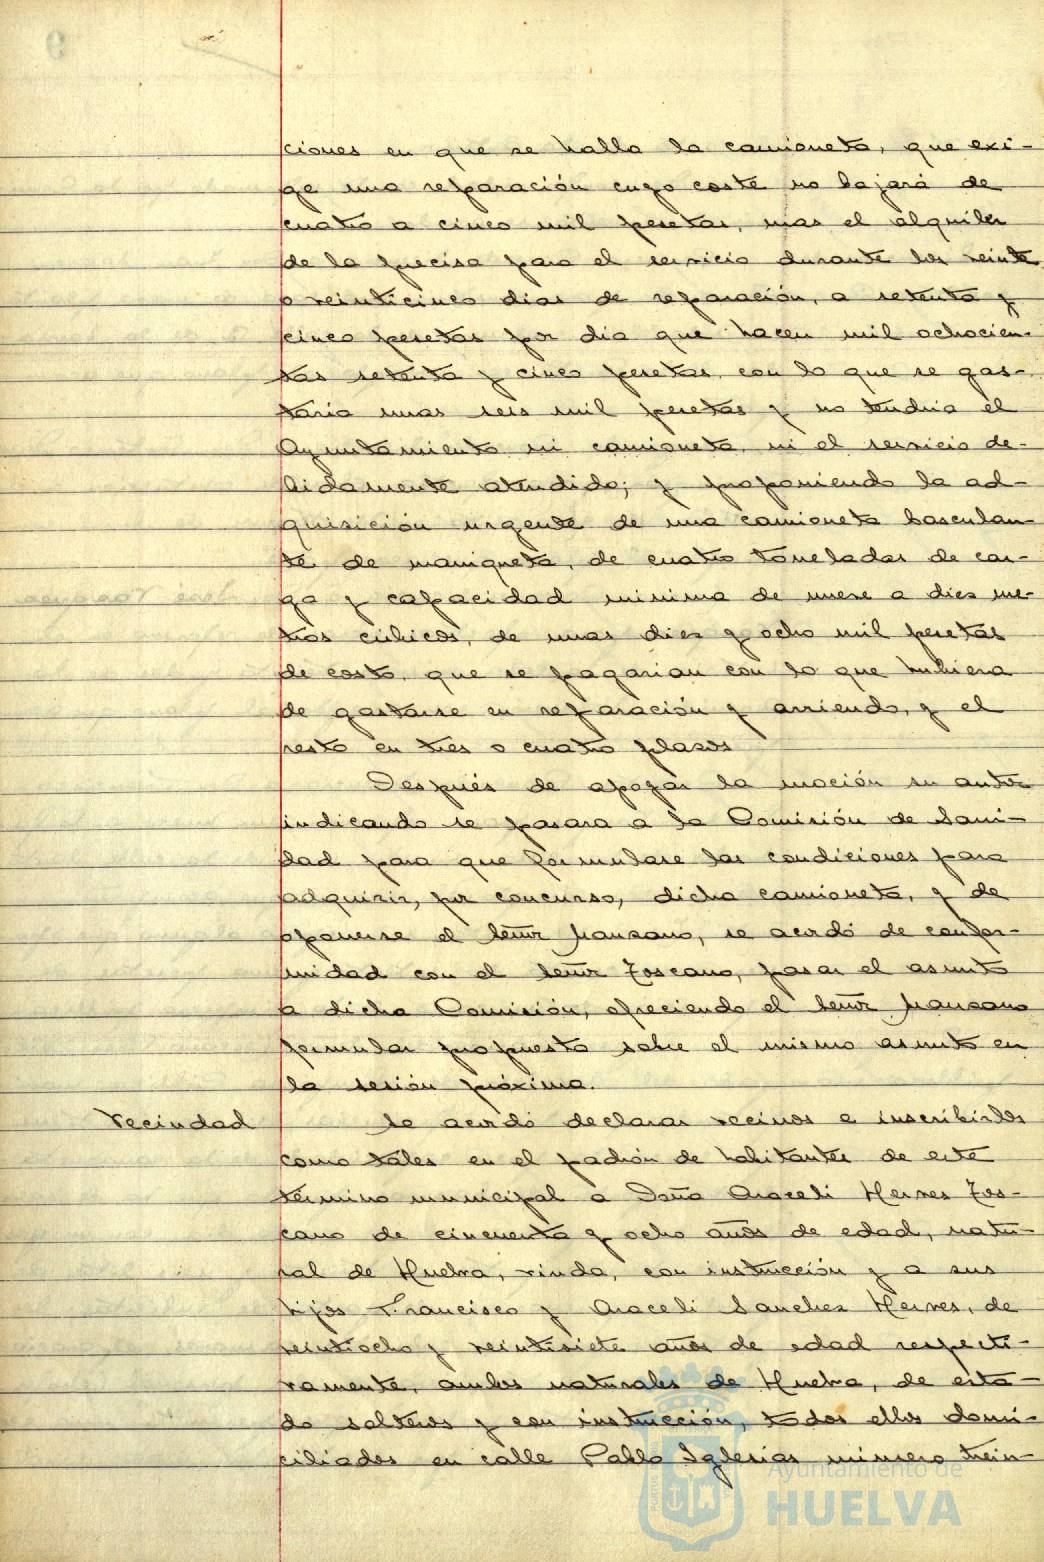 ciones en que se halla la camioneta, que exi-
ge una reparación cuyo coste no bajará de
cuatro a cinco mil pesetas, mas el alquiler
de la precisa para el servicio durante los veinte
o veinticinco dias de reparación, a setenta y
cinco pesetas por dia que hacen mil ochocien-
tas setenta y cinco pesetas, con lo que se gas-
taria unas seis mil pesetas y no tendria el
Ayuntamiento ni camioneta, ni el servicio de-
bidamente atendido; y proponiendo la ad-
quisición urgente de una camioneta basculan-
te de maniqueta, de cuatro toneladas de car-
ga y capacidad minima de nueve a diez me-
tros cúbicos, de unas diez y ocho mil pesetas
de costo, que se pagarian con lo que hubiera
de gastarse en reparación y arriendo, y el
resto en tres o cuatro plazos
Después de apoyar la moción su autor
indicando se pasara a la Comisión de Sani-
dad para que formulase las condiciones para
adquirir, por concurso, dicha camioneta, y de
oponerse el Señor Manzano, se acordó de confor-
midad con el Señor Toscano, pasar el asunto
a dicha Comisión, ofreciendo el Señor Manzano
formular propuesta sobre el mismo asunto en
la sesión próxima.
Vecindad
Se acordó declarar vecinos e inscribirlos
como tales en el padrón de habitantes de este
término municipal a Doña Araceli Hervés Tos-
cano de cincuenta y ocho años de edad, natu-
ral de Huelva, viuda, con instrucción y a sus
hijos Francisco y Araceli Sanchez Herves, de
veintiocho y veintisiete años de edad respecti-
vamente, ambos naturales de Huelva, de esta-
do solteros y con instrucción, todos ellos domi-
ciliados en calle Pablo Iglesias número trein-
Ayuntamiento de
HUELVA